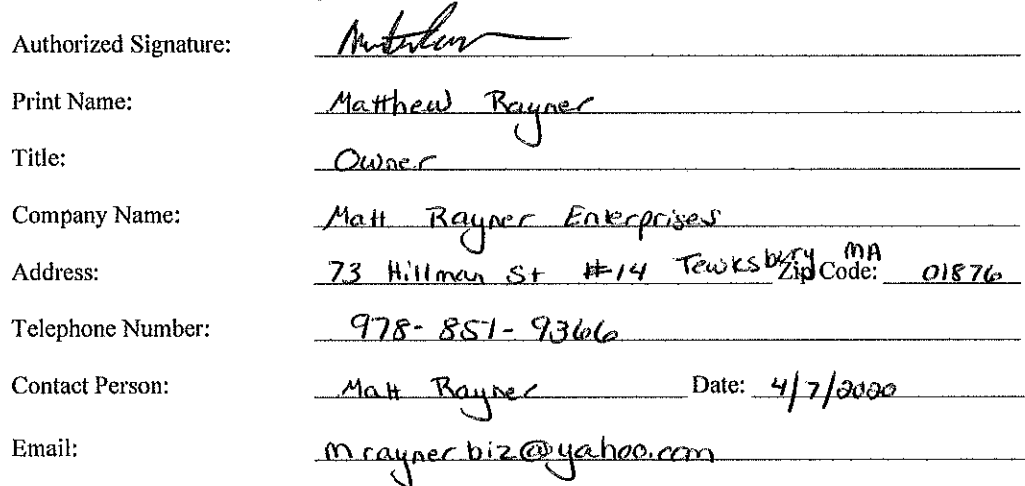 Authorized Signature:
Print Name: Matthew Rayner
Title: Owner
Company Name: Matt Rayner Enterprises
Address: 73 Hillman St #14 Tewksbury MA Zip Code: 01876
Telephone Number: 978-851-9366
Contact Person: Matt Rayner Date: 4/7/2020
Email: mraynerbiz@yahoo.com